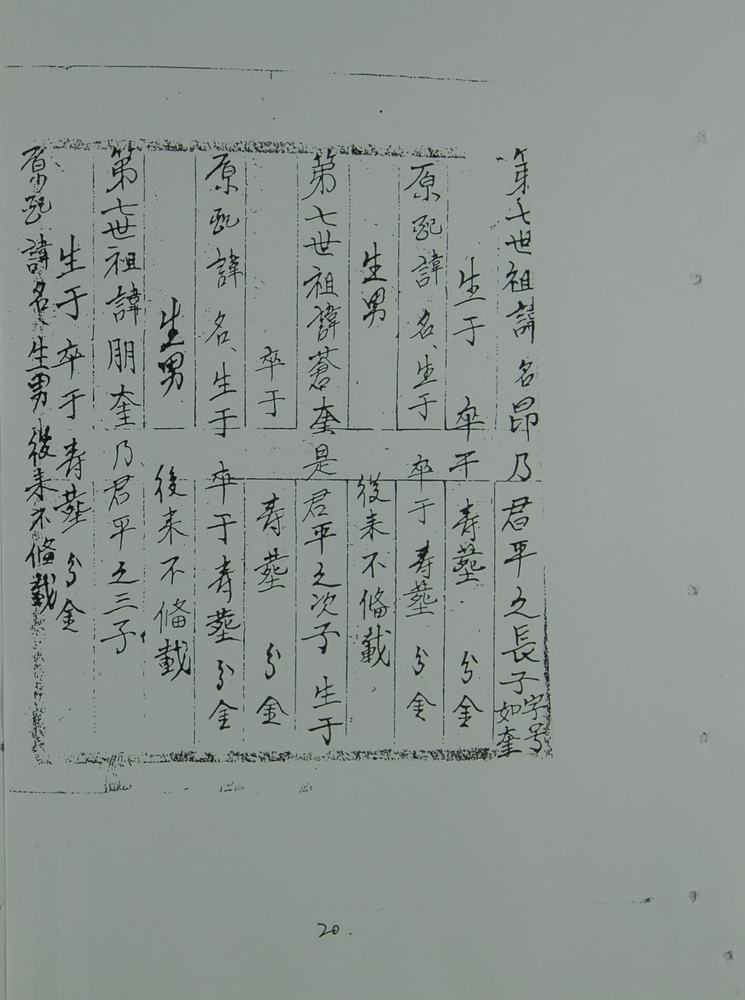 第七世祖諱名昂乃君平之長子字号如奎
生于 卒于 寿塟 分金
原配諱名、生于 卒于寿塟 分金
生男 後来不偹載
第七世祖諱蒼奎是君平之次子 生于
卒于 寿塟 分金
原配諱名、生于 卒于寿塟分金
生男 後来不偹載
第七世祖諱朋奎乃君平之三子
生于卒于寿塟分金
原配諱名生男後来不偹載
20.